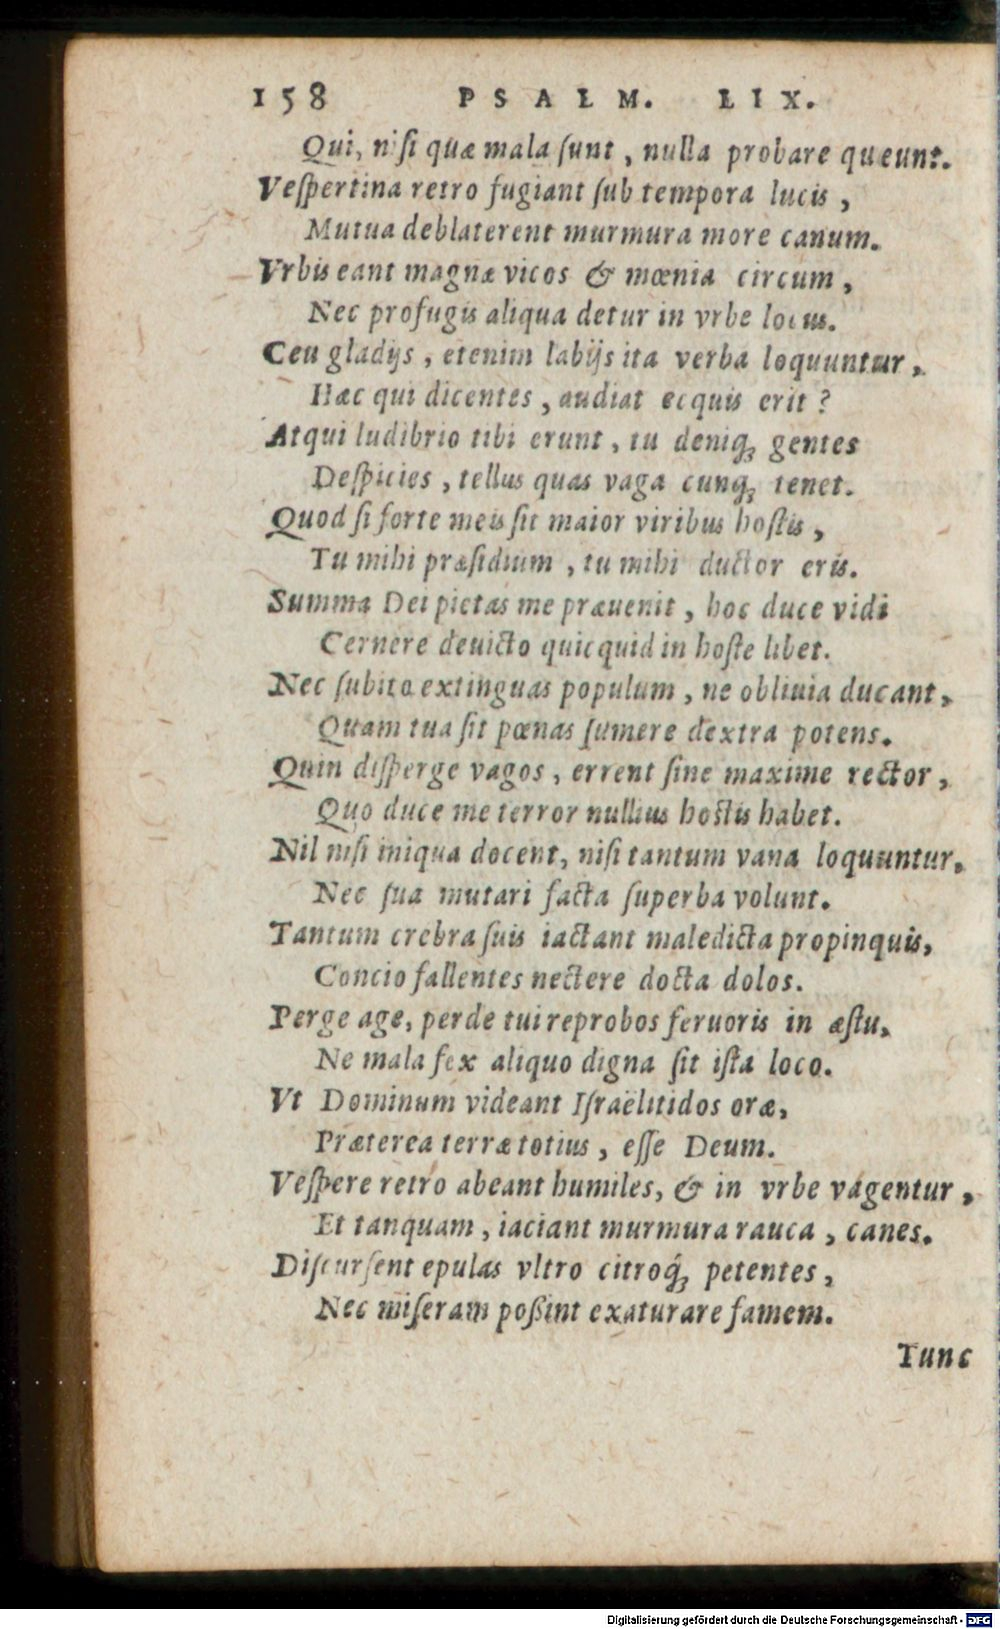 158 PSALM. LIX.
Qui, nisi quæ mala sunt, nulla probare queunt.
Vespertina retro fugiant sub tempora lucis,
Mutua deblaterent murmura more canum.
Vrbis eant magnæ vicos & mœnia circum,
Nec profugis aliqua detur in vrbe locus.
Ceu gladijs, etenim labijs ita verba loquuntur,
Hæc qui dicentes, audiat ecquis erit?
Atqui ludibrio tibi erunt, tu deniq; gentes
Despicies, tellus quas vaga cunq; tenet.
Quod si forte meis sit maior viribus hostis,
Tu mihi præsidium, tu mihi ductor eris.
Summa Dei pietas me præuenit, hoc duce vidi
Cernere deuicto quicquid in hoste libet.
Nec subito extinguas populum, ne obliuia ducant,
Quam tua sit pœnas sumere dextra potens.
Quin disperge vagos, errent sine maxime rector,
Quo duce me terror nullius hostis habet.
Nil nisi iniqua docent, nisi tantum vana loquuntur,
Nec sua mutari facta superba volunt.
Tantum crebra suis iactant maledicta propinquis,
Concio fallentes nectere docta dolos.
Perge age, perde tui reprobos feruoris in æstu,
Ne mala fex aliquo digna sit ista loco.
Vt Dominum videant Israëlitidos oræ,
Præterea terræ totius, esse Deum.
Vespere retro abeant humiles, & in vrbe vagentur,
Et tanquam, iaciant murmura rauca, canes.
Discursent epulas vltro citroq́; petentes,
Nec miseram poßint exaturare famem.
Tunc
Digitalisierung gefördert durch die Deutsche Forschungsgemeinschaft - DFG